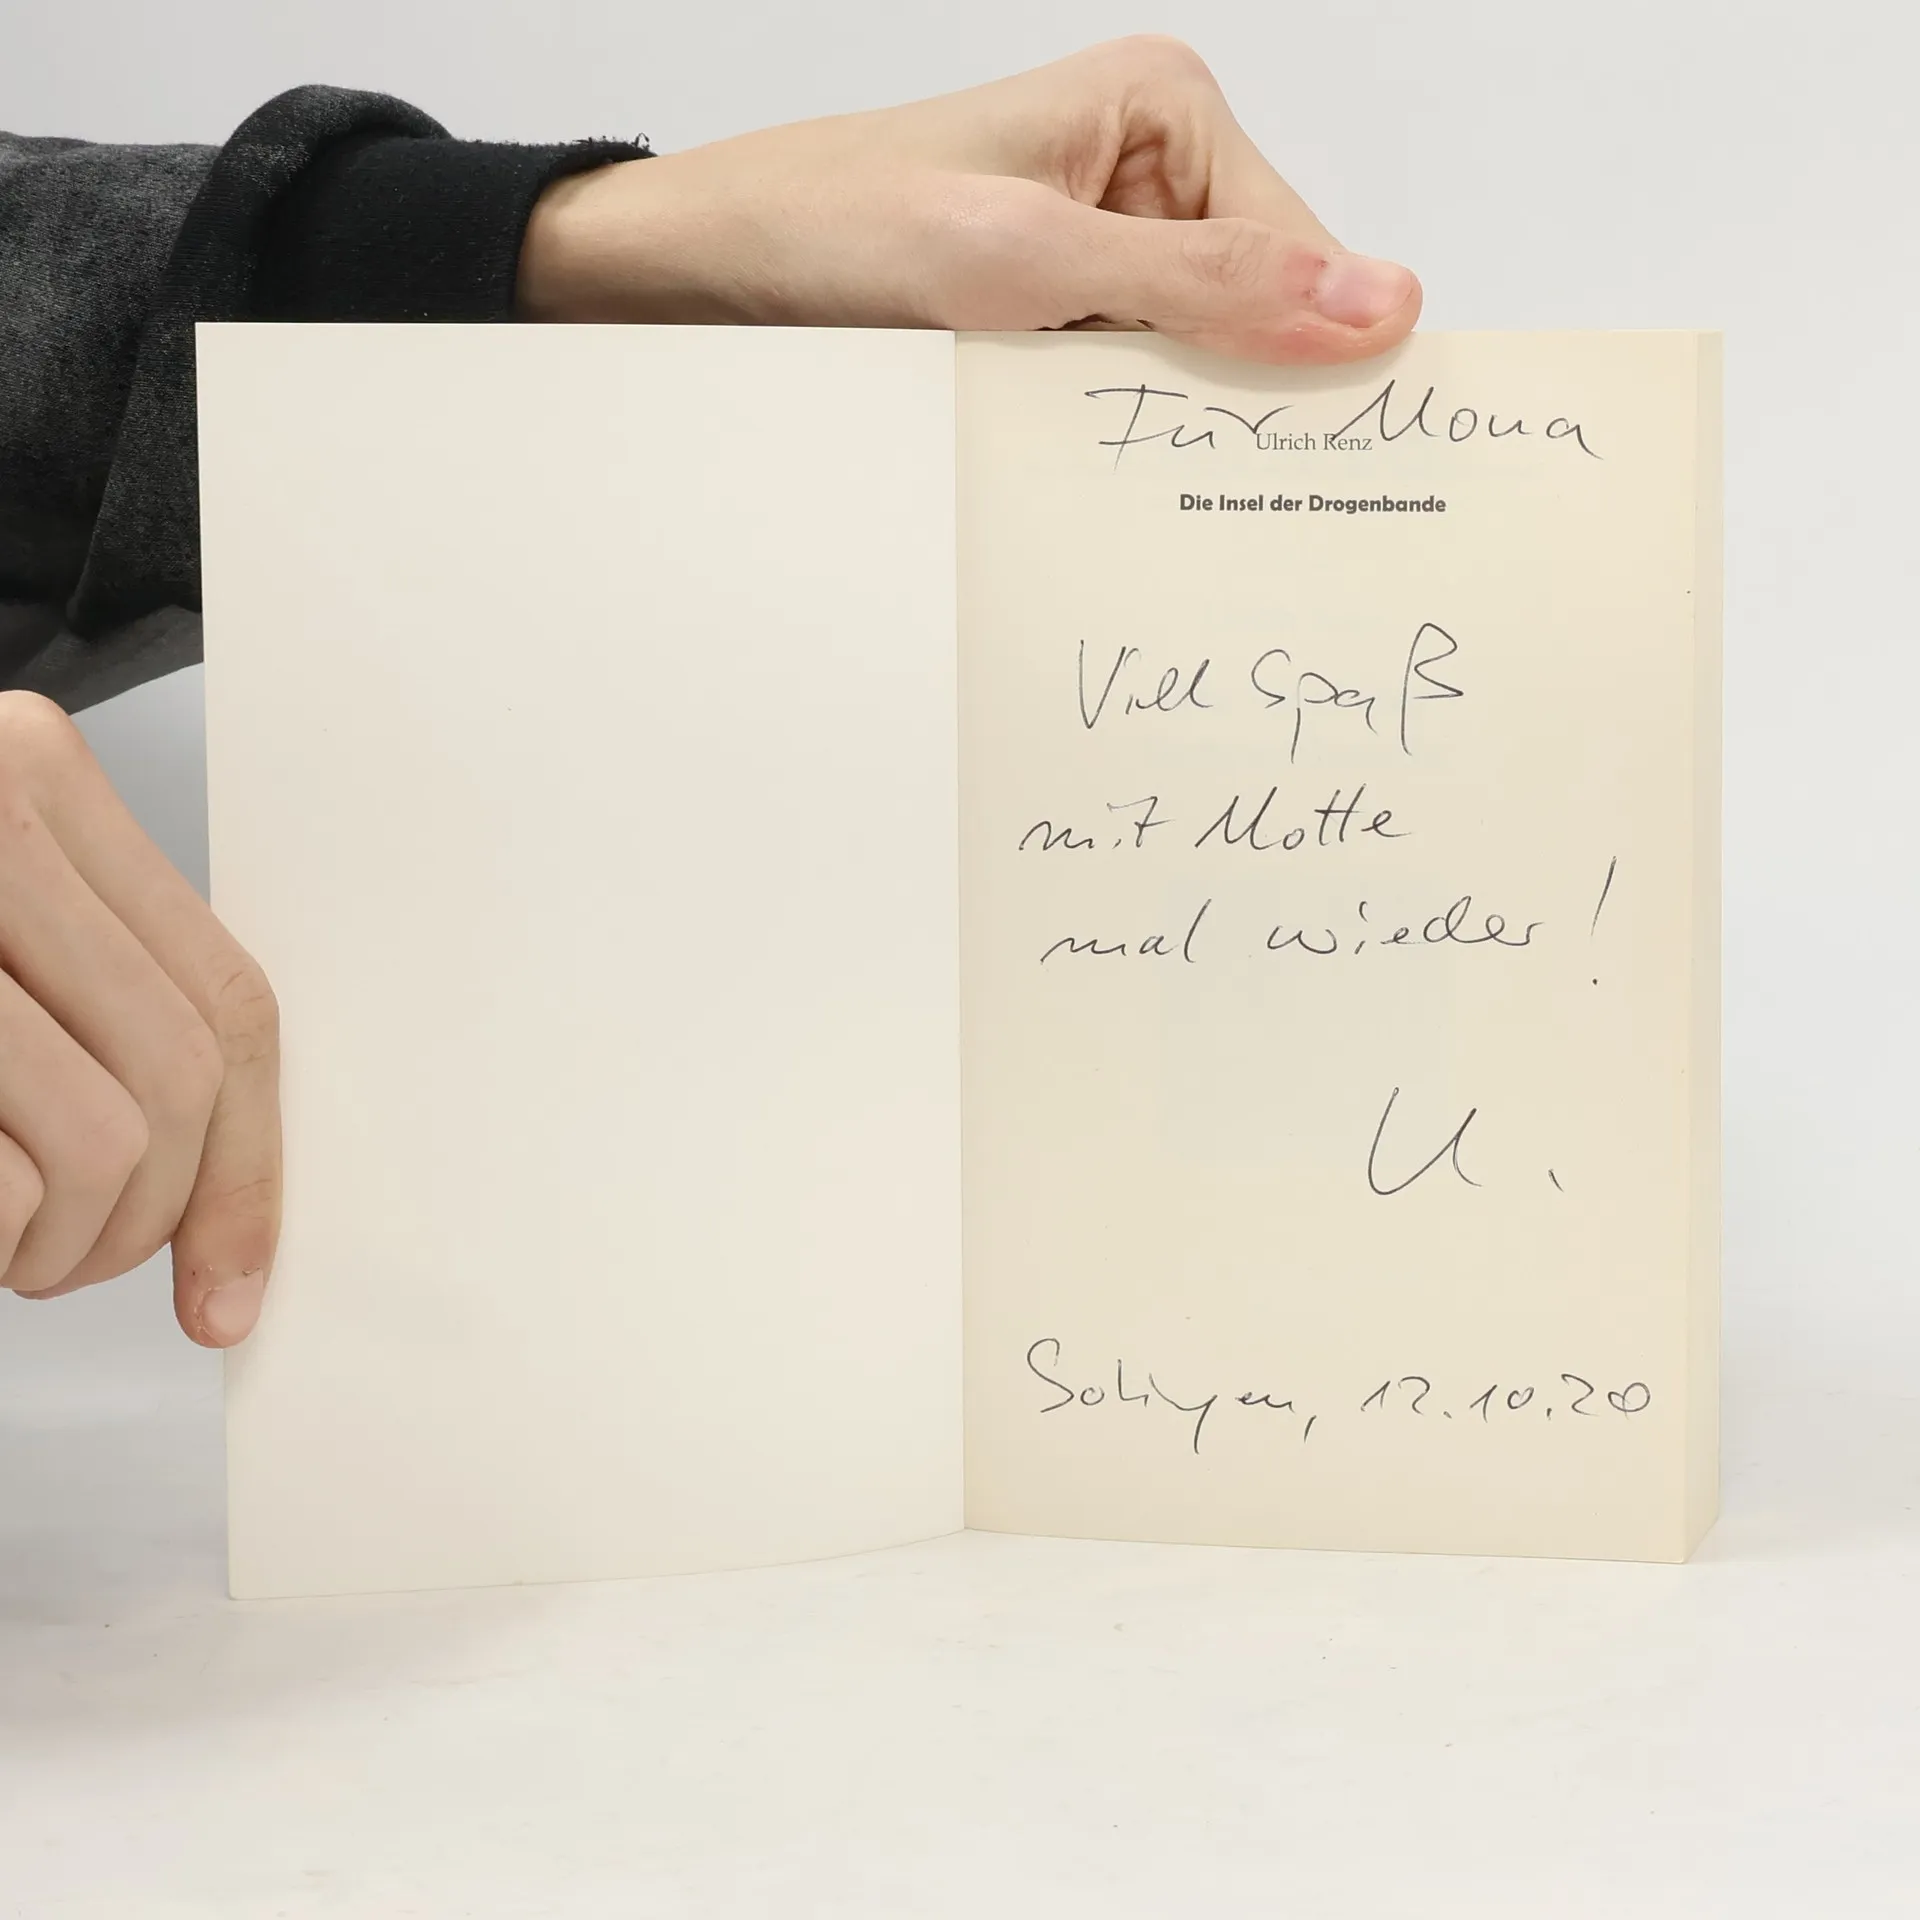 Für Mona
Ulrich Renz
Die Insel der Drogenbande
Viel Spaß
mit Motte
mal wieder!
U.
Solingen, 12.10.20